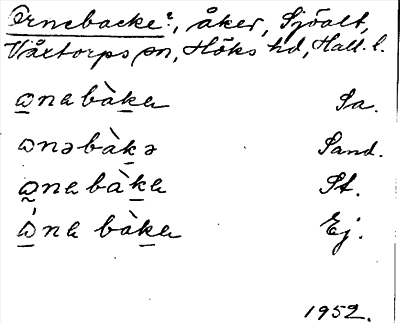 Ornebacke?, åker, Sjöalt,
Våxtorps sn, Höks hd, Hall. l.
ɷna bàka Sa.
ɷnəbàkə Sand.
ɷna bàka St.
ɷ́na bàka Ej.
1952.